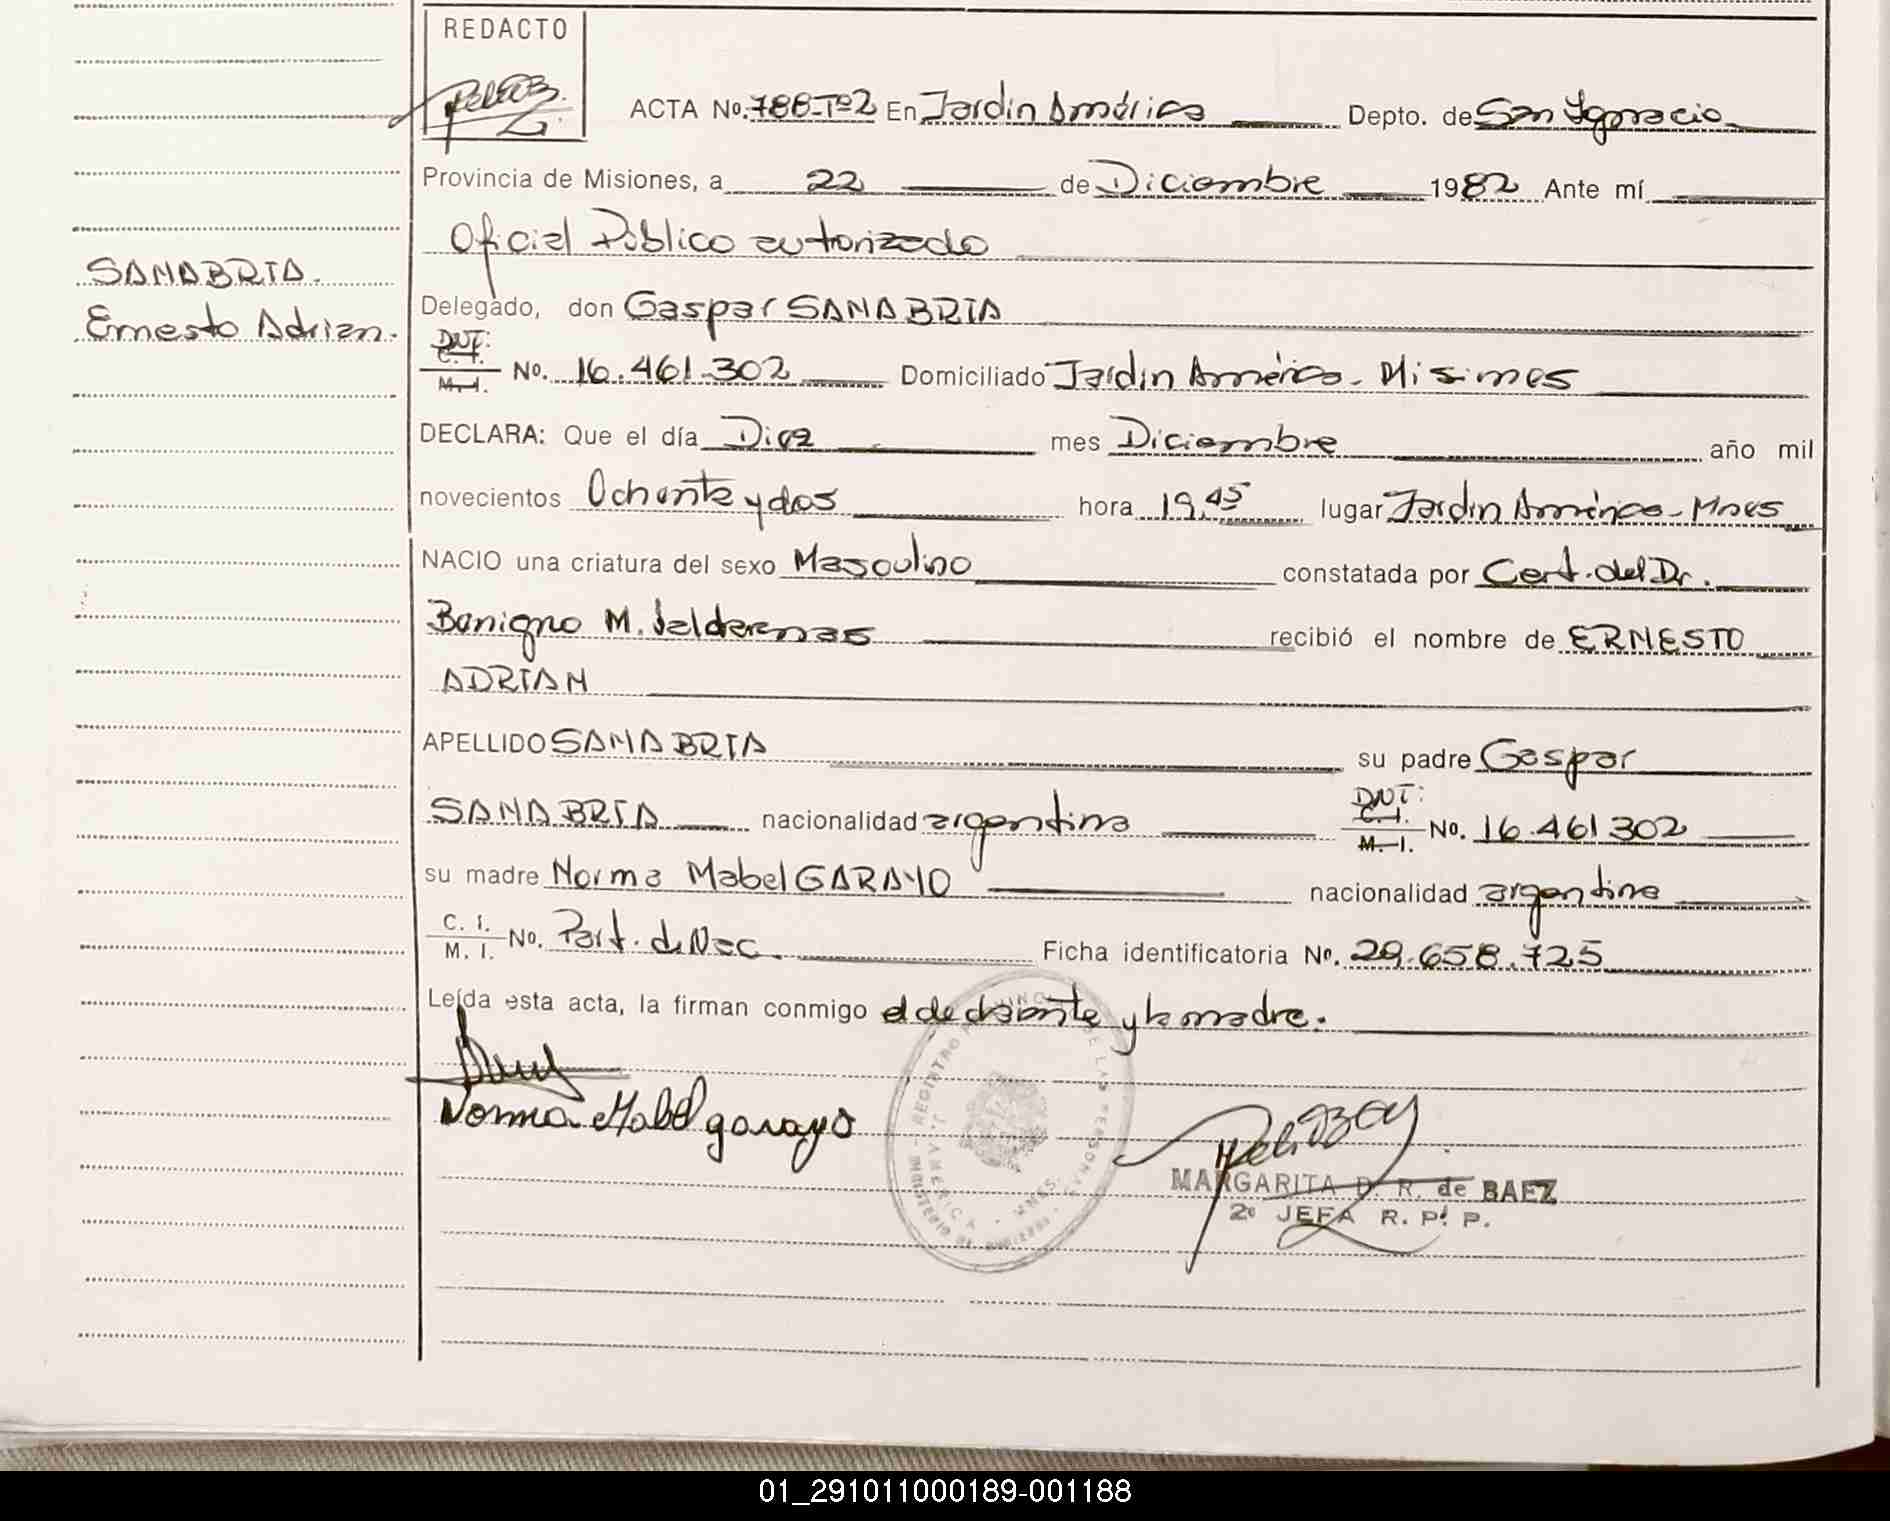 REDACTO
ACTA No. 788-Tº2 En Jardin América Depto. de San Ignacio
Provincia de Misiones, a 22 de Diciembre 1982 Ante mí
Oficial Público autorizado
SANABRIA.
Ernesto Adrian.
Delegado, don Gaspar SANABRIA
DNI:
C. I.
M. I. No. 16.461.302 Domiciliado Jardin América - Misiones
DECLARA: Que el día Diez mes Diciembre año mil
novecientos Ochenta y dos hora 19,45 lugar Jardin América - Mnes
NACIO una criatura del sexo Masculino constatada por Cert. del Dr.
Benigno M. Valdernas recibió el nombre de ERNESTO
ADRIAN
APELLIDO SANABRIA su padre Gaspar
SANABRIA nacionalidad argentina DNI: C. I. M. I. No. 16.461.302
su madre Norma Mabel GARAYO nacionalidad argentina
C. I.
M. I. No. Part. de Nac. Ficha identificatoria No. 29.658.725
Leída esta acta, la firman conmigo el declarante y la madre.
Norma Mabel garayo
MARGARITA D. R. de BAEZ
2º JEFA R. P. P.
01_291011000189-001188